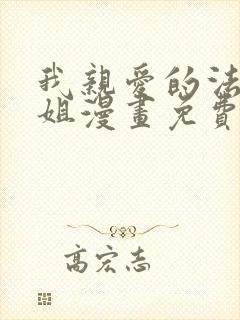 我親愛的法
姐漫畫免費
高宏志